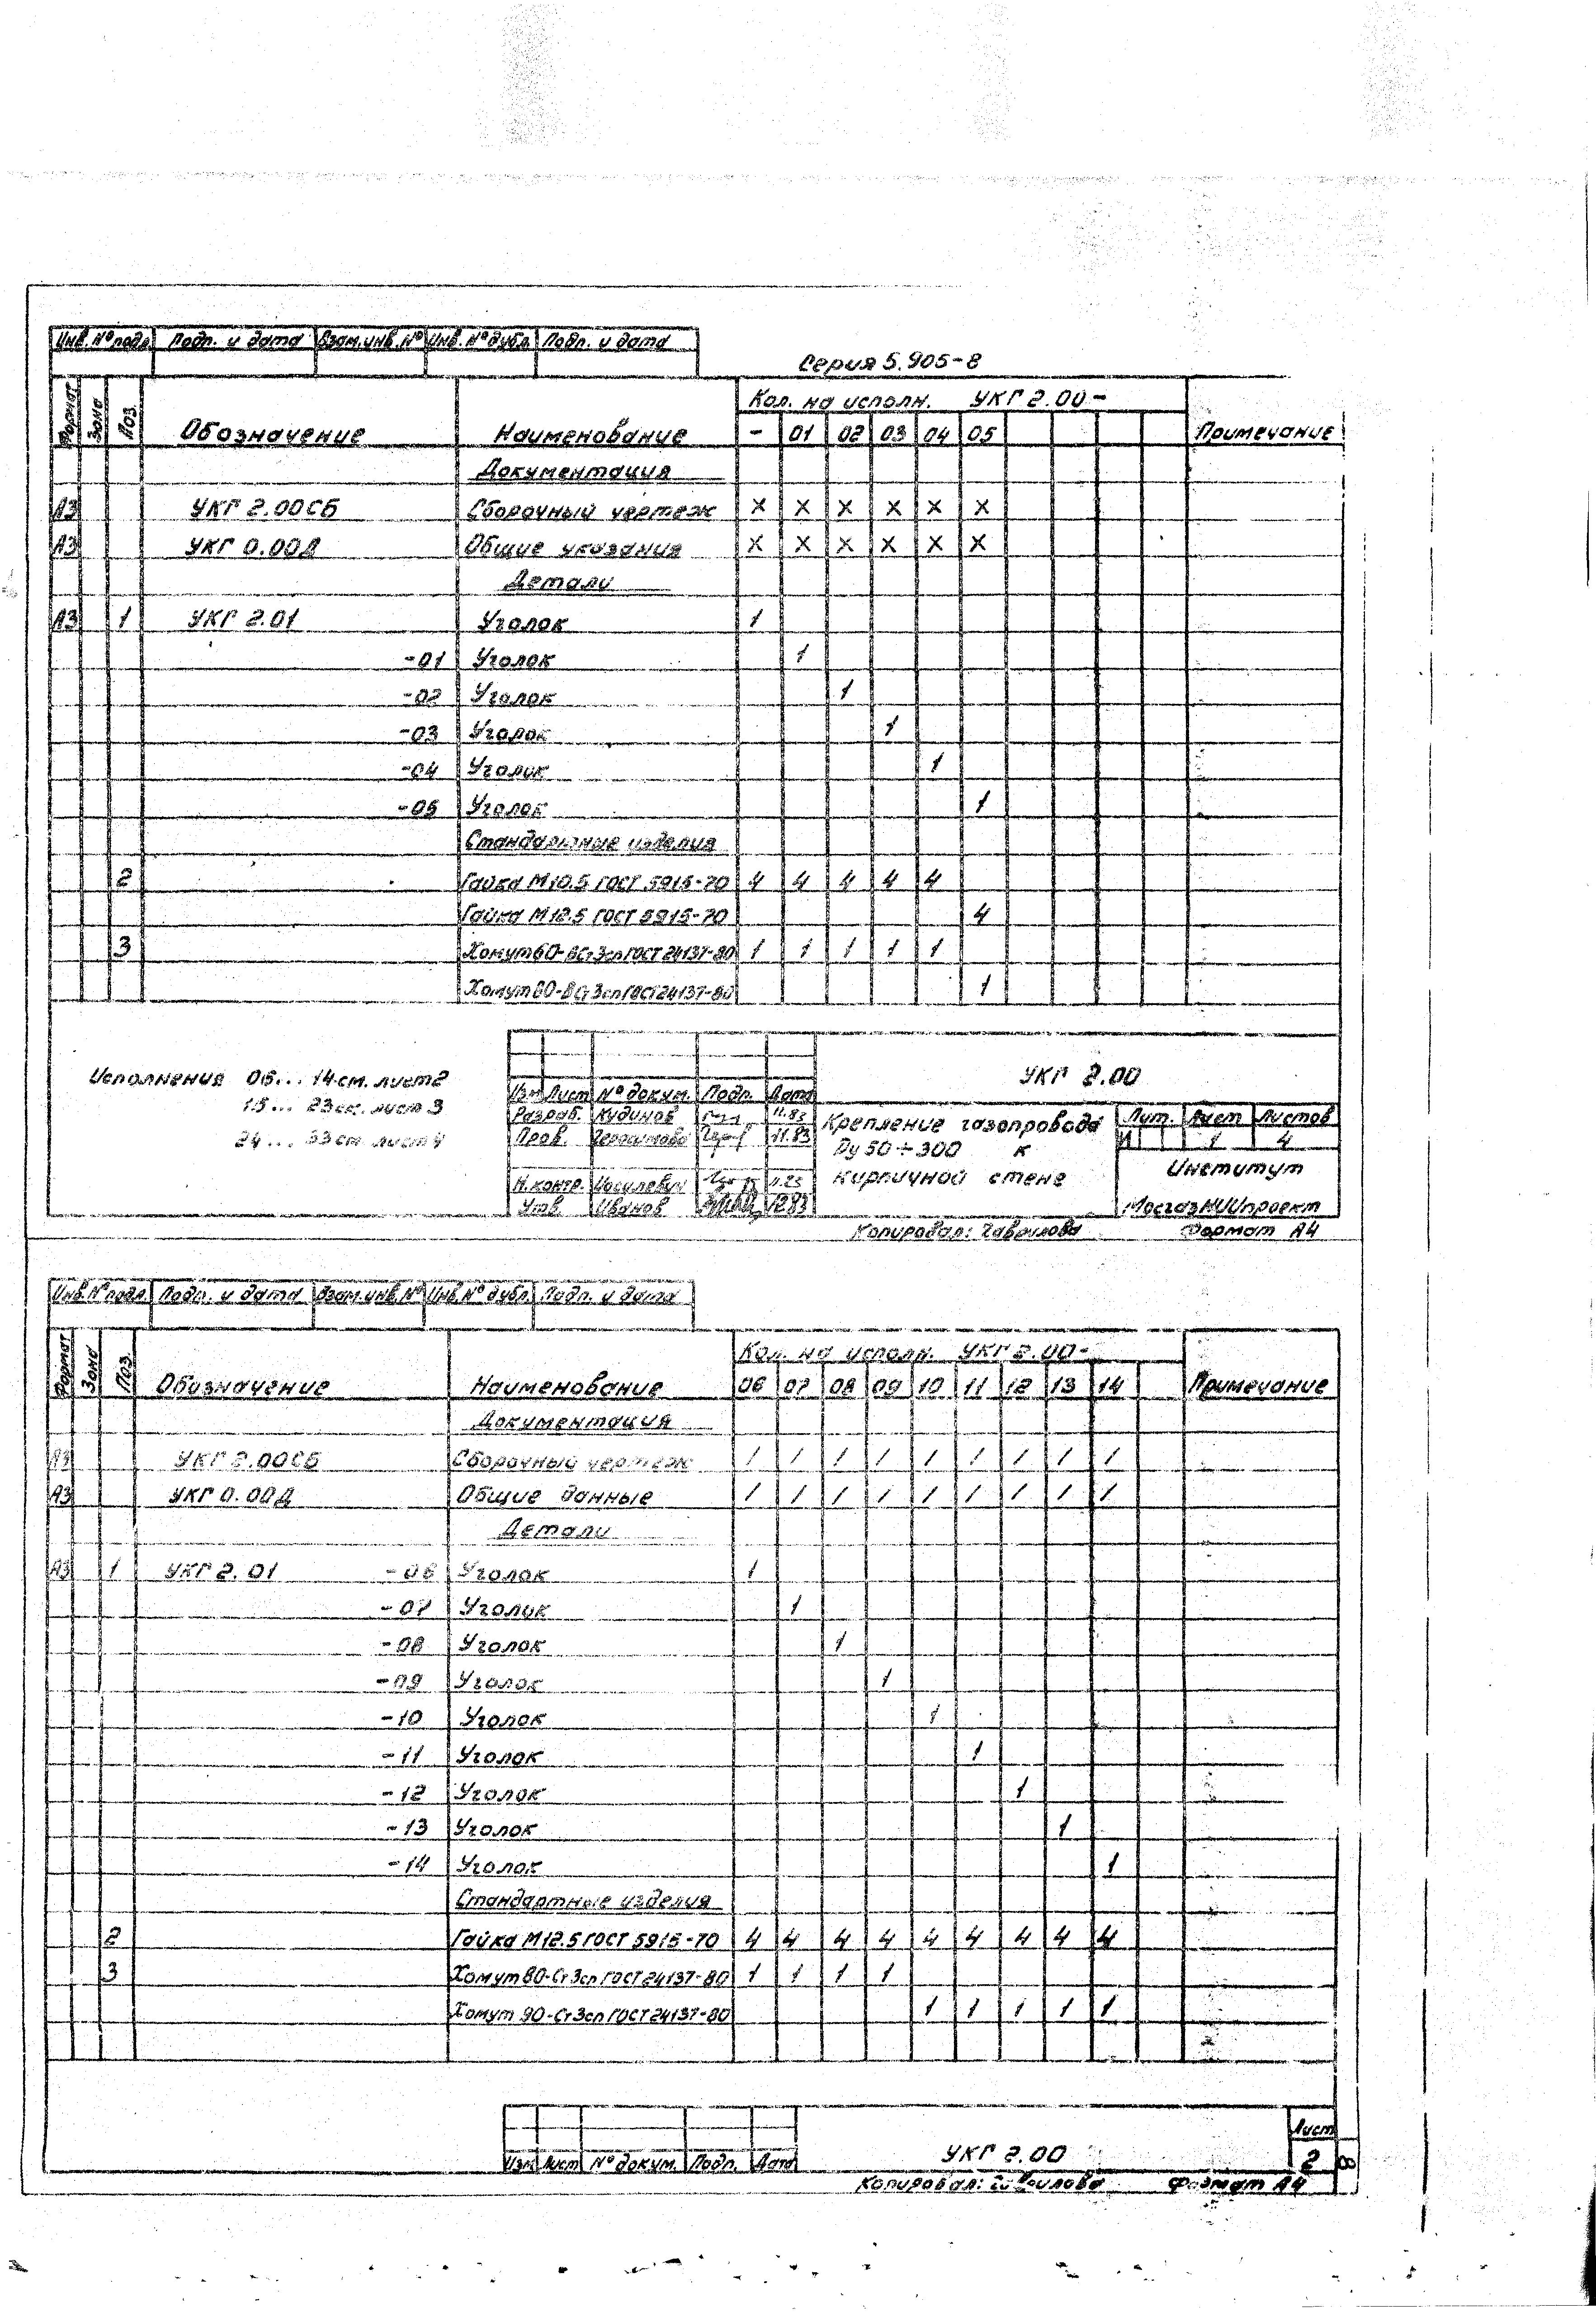 Инв. № подл. Подп. и дата Взам. инв. № Инв. № дубл. Подп. и дата
Серия 5.905-8
Формат Зона Поз. Обозначение Наименование Кол. на исполн. УКГ 2.00- Примечание
- 01 02 03 04 05
Документация
А3 УКГ 2.00СБ Сборочный чертеж X X X X X X
А3 УКГ 0.00Д Общие указания X X X X X X
Детали
А3 1 УКГ 2.01 Уголок 1
-01 Уголок 1
-02 Уголок 1
-03 Уголок 1
-04 Уголок 1
-05 Уголок 1
Стандартные изделия
2 Гайка М10.5 ГОСТ 5915-70 4 4 4 4 4
Гайка М12.5 ГОСТ 5915-70 4
3 Хомут 60-ВСт3сп ГОСТ 24137-80 1 1 1 1 1
Хомут 80-ВСт3сп ГОСТ 24137-80 1
Исполнения 06... 14 см. лист 2
15... 23 см. лист 3
24... 33 см лист 4
УКГ 2.00
Изм Лист № докум. Подп. Дата
Разраб. Кудинов 11.83
Пров. 11.83
Н.контр. Иосилевич
Утв. Иванов 12.83
Крепление газопровода
Ду 50÷300 к
кирпичной стене
Лит. Лист Листов
И 1 4
Институт
МосгазНИИпроект
Копировал: Гаврилова Формат А4
Инв. № подл. Подп. и дата Взам. инв. № Инв. № дубл. Подп. и дата
Формат Зона Поз. Обозначение Наименование Кол. на исполн. УКГ 2.00- Примечание
06 07 08 09 10 11 12 13 14
Документация
А3 УКГ 2.00СБ Сборочный чертеж / / / / / / / / /
А3 УКГ 0.00Д Общие данные / / / / / / / / /
Детали
А3 1 УКГ 2.01 -06 Уголок 1
-07 Уголок 1
-08 Уголок 1
-09 Уголок 1
-10 Уголок 1
-11 Уголок 1
-12 Уголок 1
-13 Уголок 1
-14 Уголок 1
Стандартные изделия
2 Гайка М12.5 ГОСТ 5915-70 4 4 4 4 4 4 4 4 4
3 Хомут 80-Ст3сп ГОСТ 24137-80 1 1 1 1
Хомут 90-Ст3сп ГОСТ 24137-80 1 1 1 1 1
Изм Лист № докум. Подп. Дата
УКГ 2.00
Лист
2
8
Копировал: Гаврилова Формат А4